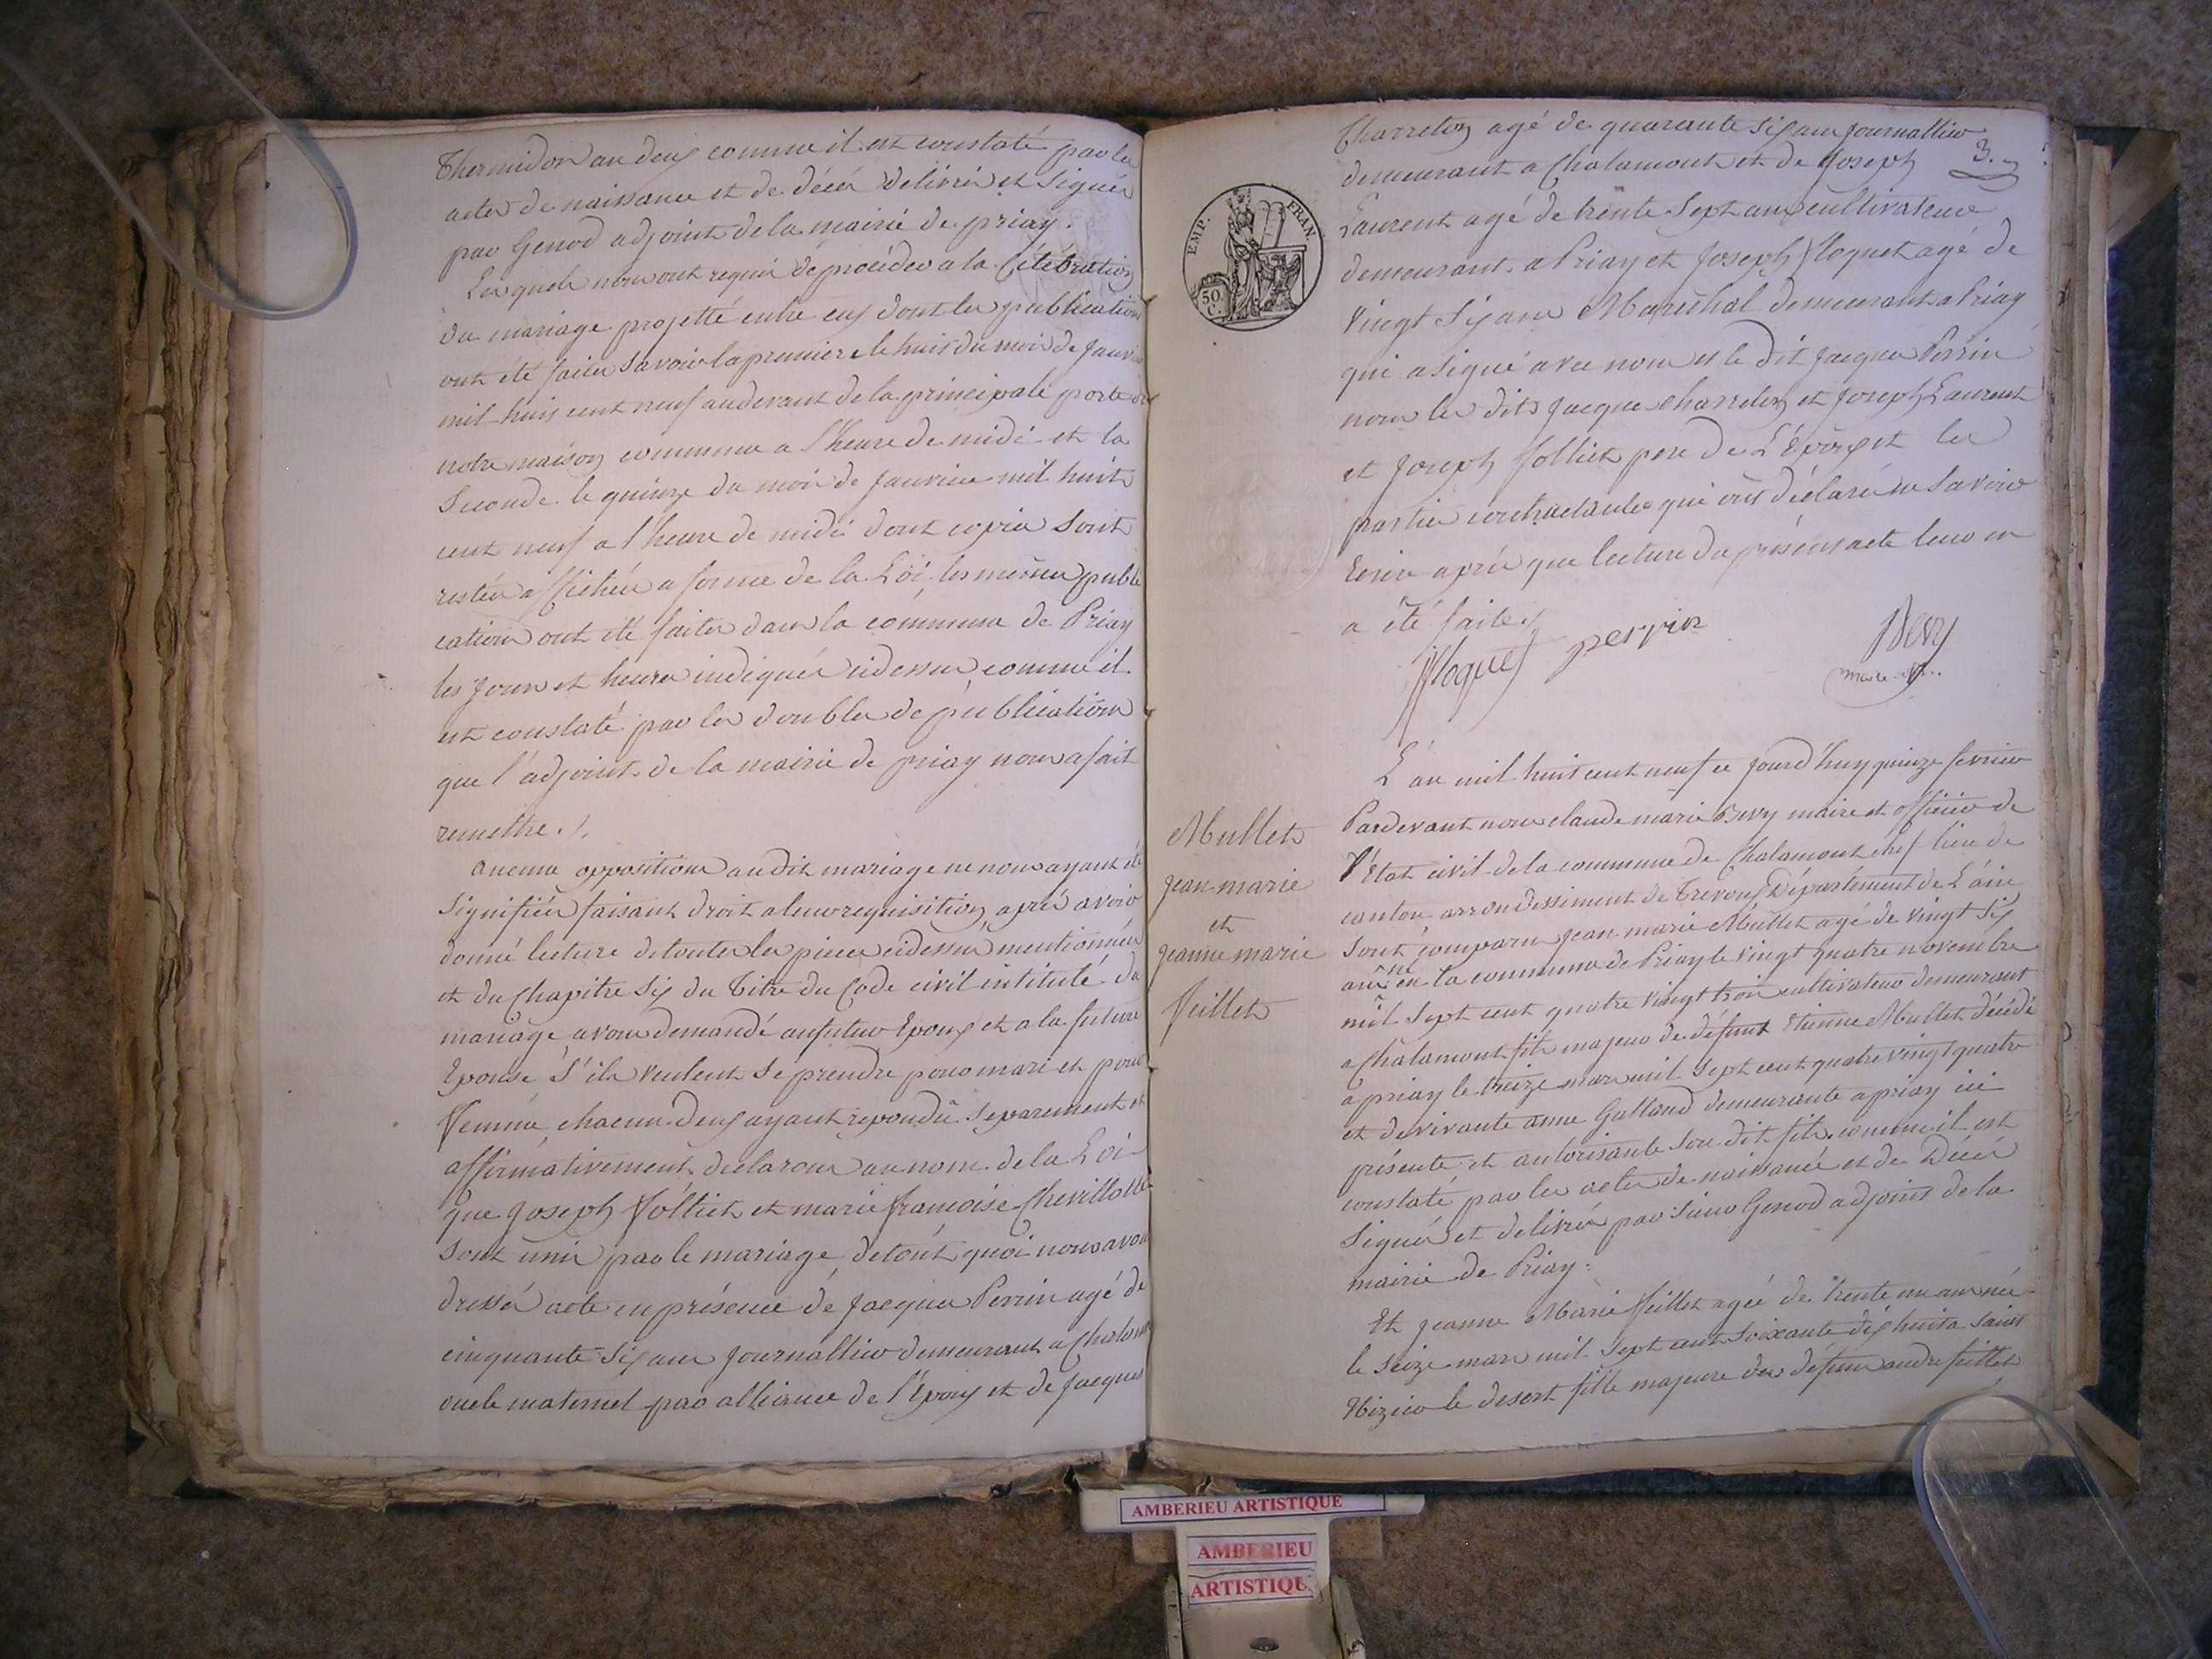 Thermidor an deux comme il est constaté par les
actes de naissance et de décès délivrés et signés
par Genod adjoint de la mairie de priay.
Lesquels nous ont requis de procéder a la Célébration
du mariage projetté entre eux dont les publications
ont été faites savoir la premiere le huit du mois de Janvier
mil huit cent neuf audevant de la principale porte de
notre maison commune a l'heure de midi et la
Seconde le quinze du mois de Janvier mil huit
cent neuf a l'heure de midi dont copies sont
restées affichées a forme de la Loi. les mêmes publi
cations ont été faites dans la commune de Priay
les jours et heures indiqués cidessus comme il
est constaté par les doubles de publications
que l'adjoint de la mairie de priay nous a fait
remettre ./.
aucune opposition audit mariage ne nous ayant été
Signifiée faisant droit a leur requisition, après avoir
donné lecture de toutes les pieces cidessus mentionnées
et du Chapitre six du Titre du Code civil intitulé du
mariage avons demandé au futur Epoux et a la future
Epouse S'ils veulent se prendre pour mari et pour
femme, chacun d'eux ayant répondu separement et
affirmativement, declarons au nom de la Loi
que Joseph folliet et marie françoise Chevillotte
sont unis par le mariage, de tout quoi nous avons
dressé acte en présence de Jacques Perrin agé de
cinquante six ans Journallier demeurant a Chalam
oncle maternel par alliance de l'Epoux et de Jacques
Charreton agé de quarante six ans Journallier
3.
demeurant a Chalamont et de Joseph
Laurent agé de trente Sept ans cultivateur
demeurant a Priay et Joseph floquet agé de
vingt six ans Maréchal demeurant a Priay
qui a signé avec nous et le dit Jacques Perrin
non les dits Jacques Charreton et Joseph Laurent
et Joseph folliet pere de L'Epoux et les
parties contractantes qui ont déclaré ne savoir
Ecrire après que lecture du présent acte leur en
a été faite ./.
EMP. FRAN.
50 C.
J floquet perrin Bevy
maire
L'an mil huit cent neuf ce jourd'huy quinze fevrier
Pardevant nous claude marie Bevy maire et officier de
l'Etat civil de la commune de Chalamont chef lieu de
canton arrondissement de Trevoux Département de L'ain
Sont comparu Jean marie Mullet agé de vingt six
ans né en la commune de Priay le vingt quatre novembre
mil sept cent quatre vingt trois cultivateur demeurant
a Chalamont fils majeur de défunt Etienne Mullet décédé
a priay le treize mars mil sept cent quatre vingt quatre
et de vivante anne Galland demeurante a priay ici
présente et autorisante son dit fils comme il est
constaté par les actes de naissance et de Décès
signés et délivrés par Sieur Genod adjoint de la
mairie de Priay.
Et Jeanne Marie feillet agée de trente un ans née
le seize mars mil sept cent soixante dix huit a saint
Nizier le desert fille majeure des défunts andré feillet
Mullet
jean marie
et
jeanne marie
feillet
AMBERIEU ARTISTIQUE
AMBERIEU
ARTISTIQU